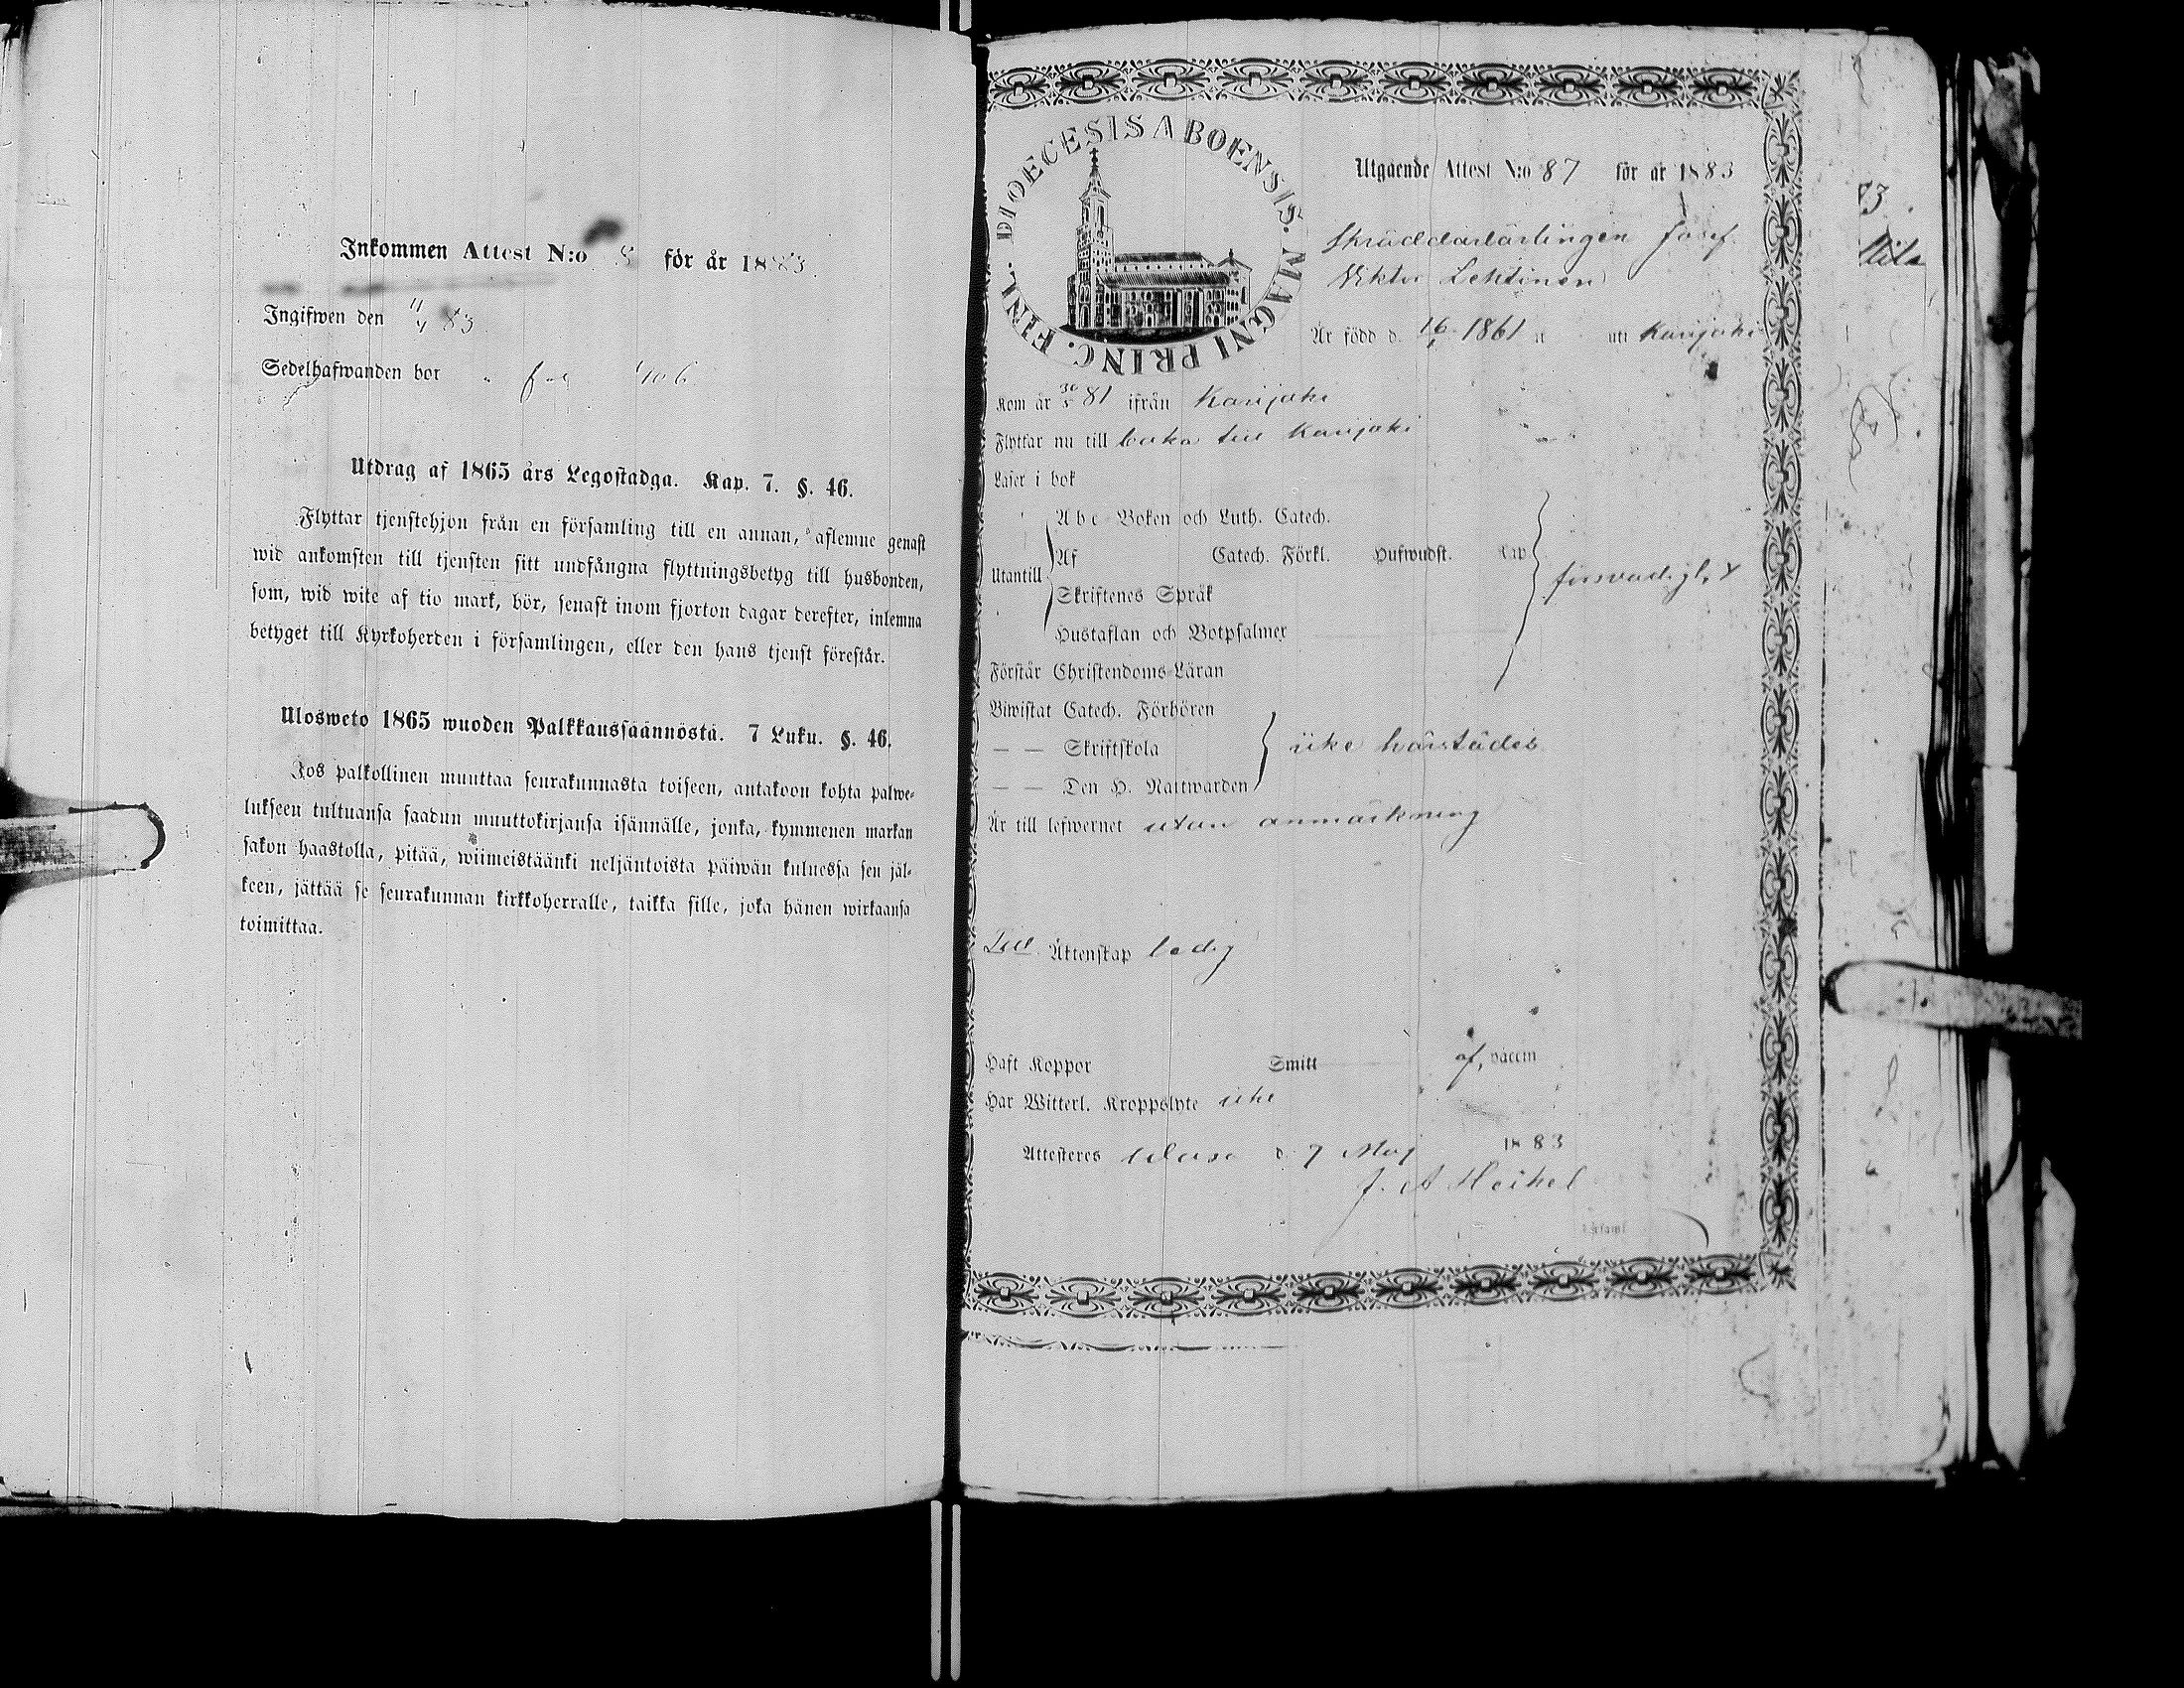 Inkommen Attest N:o 8 för år 1883.
Ingifwen den 11/4 83
Sedelhafwanden bor fol 406
Utdrag af 1865 års Legostadga. Kap. 7. §. 46.
Flyttar tjenstehjon från en församling till en annan, aflemne genast
wid ankomsten till tjensten sitt undfångna flyttningsbetyg till husbonden,
som, wid wite af tio mark, bör, senast inom fjorton dagar derefter, inlemna
betyget till Kyrkoherden i församlingen, eller den hans tjenst förestår.
Ulosweto 1865 wuoden Palkkaussäännöstä. 7 Luku. §. 46.
Jos palkollinen muuttaa seurakunnasta toiseen, antakoon kohta palwe-
lukseen tultuansa saadun muuttokirjansa isännälle, jonka, kymmenen markan
sakon haastolla, pitää, wiimeistäänki neljäntoista päiwän kuluessa sen jäl-
keen, jättää se seurakunnan kirkkoherralle, taikka sille, joka hänen wirkaansa
toimittaa.
DIOECESIS ABOENSIS. MAGNI PRINC. FINL.
Utgaende Attest N:o 87 för år 1883
Skräddarlärlingen Josef
Viktor Lehtinen
Är född d. 16 1861 uti Karijoki
Kom år 30/5 81 ifrån Karijoki
Flyttar nu till baka till Karijoki
Läser i bok
Utantill
Abc Boken och Luth. Catech.
Af Catech. Förkl. Hufwudst. Kap
Skriftenes Språk
Hustaflan och Botpsalmer
Förstår Christendoms-Läran
försvarligt
Biwistat Catech. Förhören
— — Skriftskola
— — Den H. Nattwarden
icke härstädes
Är till lefwernet utan anmärkning
Till Äktenskap ledig
Haft Koppor Smitt af, vaccin
Har Witterl. Kroppslyte icke
Attesteres d. 7 Maj 1883
J. A Heikel